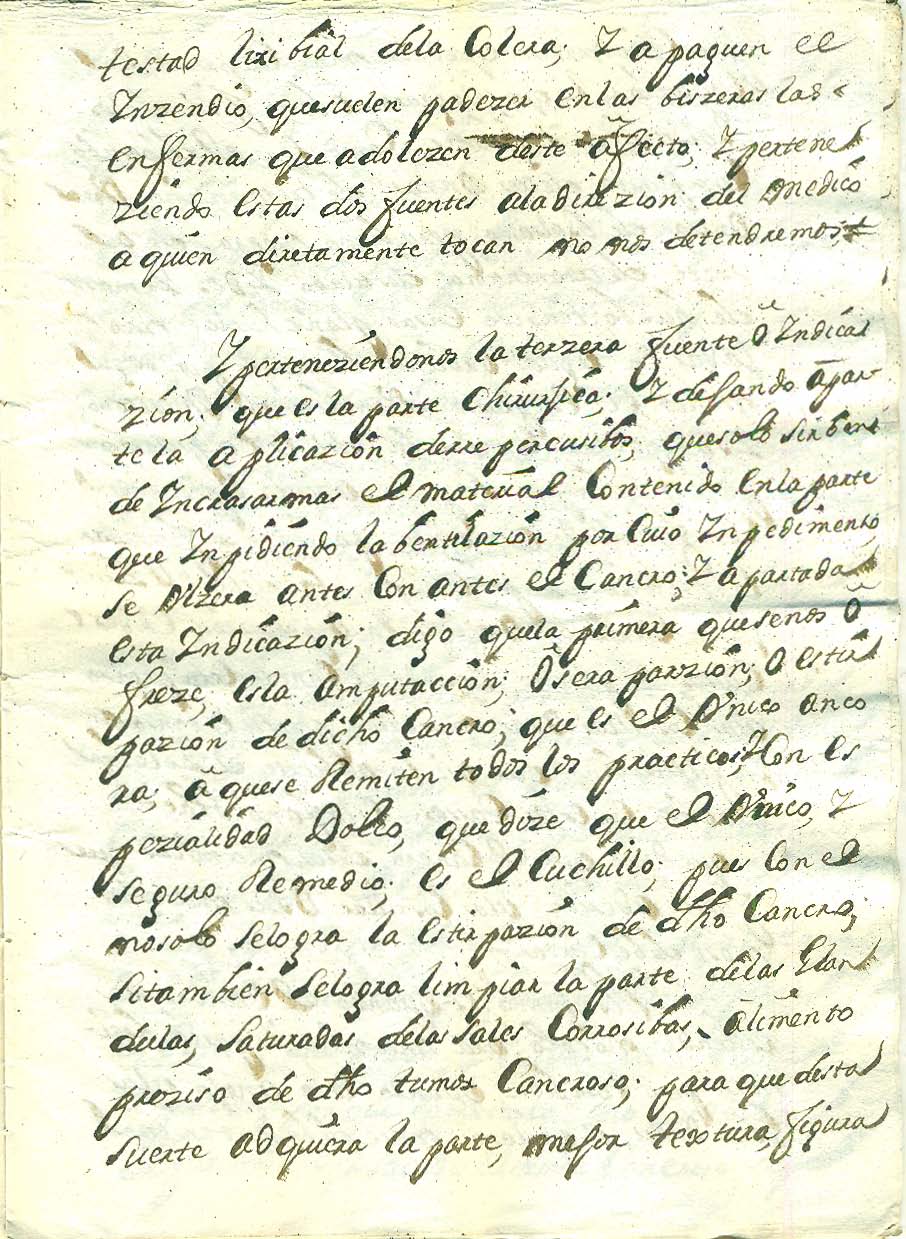 testad lixibial dela Colera; Y apaguen el
Inzendio, quesuelen padezer enlas biszeras las
enfermas que adolezen deste afecto; Y pertene
ziendo estas dos fuentes aladirezion del Medico
a quien diretamente tocan no nos detendremos
Y perteneziendonos la terzera fuente ò Indica
zion; que es la parte Chirurjica; Y dejando àpar
te la aplicazion derrepercusibos, quesolo sirben
de Incrasarmas el material Contenido enla parte
que Inpidiendo la bentilazion por Cuio Inpedimento
se Ulzera antes Con antes el Cancro; Y apartada
esta Indicazion; digo quela primera quesenos ò
freze, esla amputaccion; ò separazion; ò estir
pazion de dicho Cancro; que es el Unico anco
ra; à quese Remiten todos los practicos, Y Con es
pezialidad Doleo, que dize que el Unico, Y
seguro Remedio; es el Cuchillo; pues Con el
nosolo selogra la estirpazion de dho Cancro;
sitambien selogra limpiar la parte delas Glan
dulas, saturadas delas sales Corrosibas, alimento
preziso de dho tumor Cancroso; para que desta
suerte adquiera la parte, mejor textura, figura